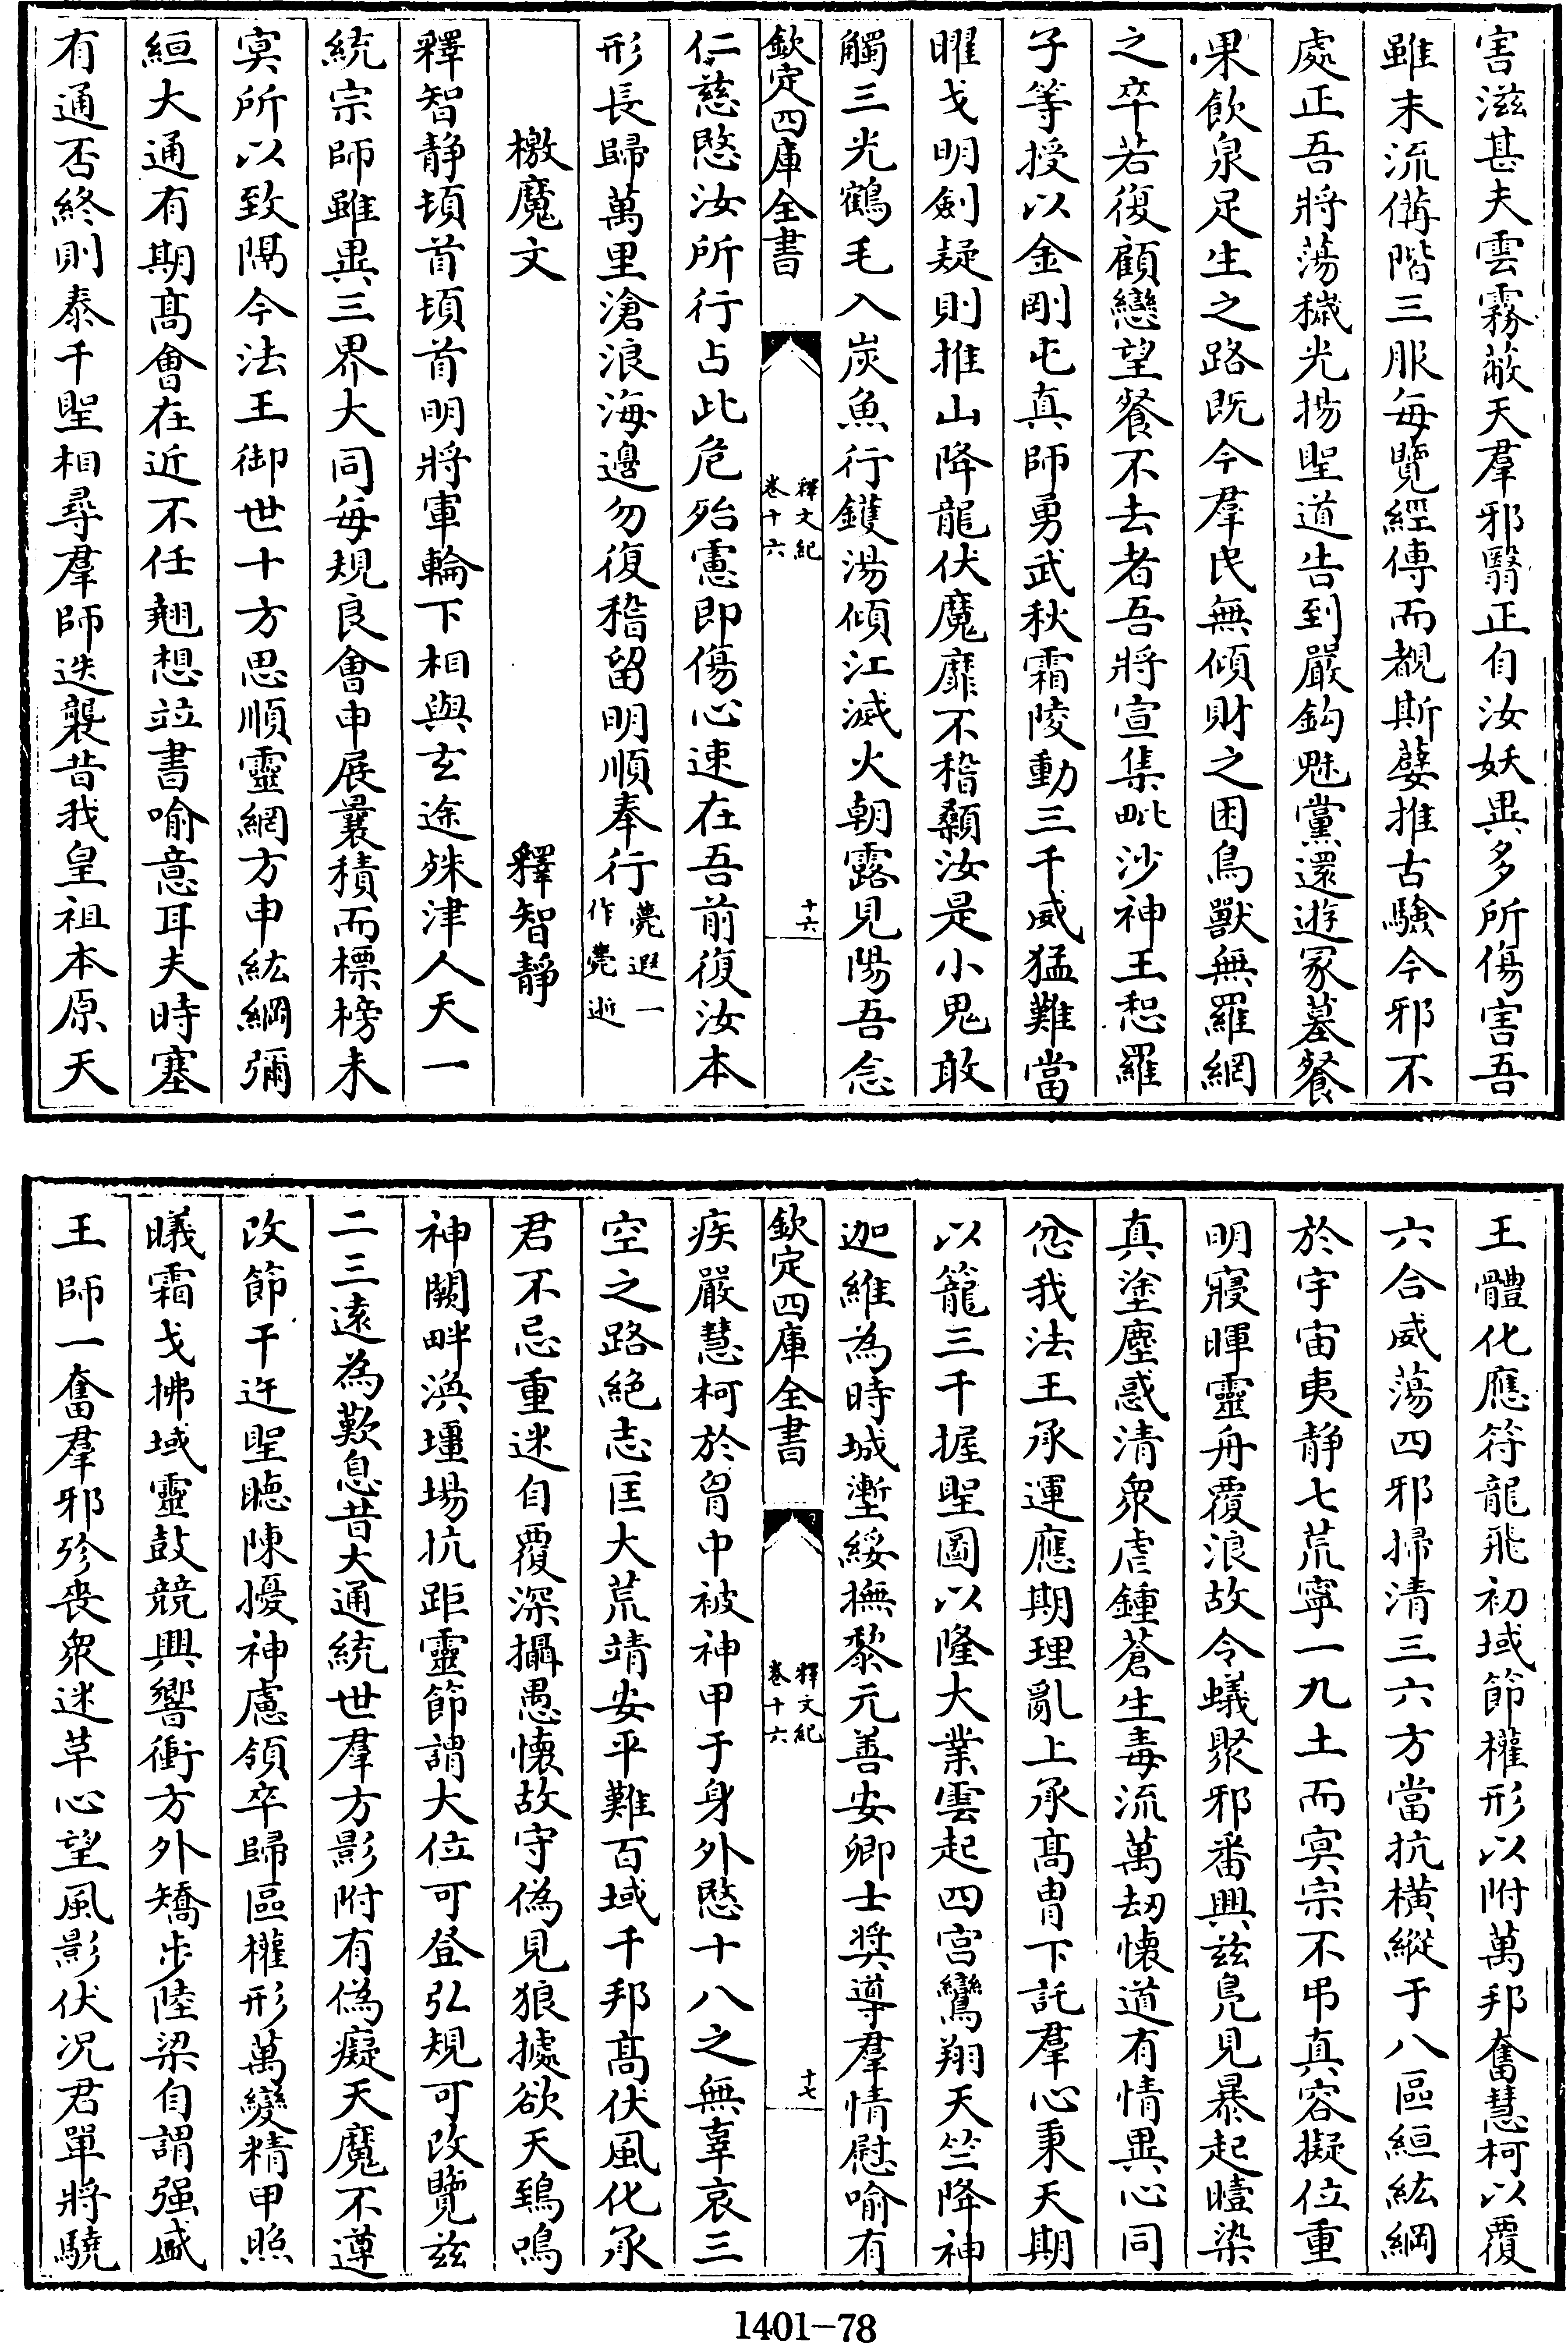 害滋甚夫雲霧蔽天羣邪翳正自汝妖異多所傷害吾
雖末流備階三服每覽經傳而覩斯孽推古驗今邪不
處正吾將蕩穢光揚聖道告到嚴鈎魅黨還遊冢墓餐
果飲泉足生之路既今羣民無傾財之困鳥獸無羅網
之卒若復顧戀望餐不去者吾將宣集毗沙神王惒羅
子等授以金剛屯真師勇武秋霜陵動三千威猛難當
曜戈明劍疑則推山降龍伏魔靡不稽顙汝是小鬼敢
觸三光鶴毛入炭魚行鑊湯傾江滅火朝露見陽吾念
欽定四庫全書
釋文紀
卷十六
十六
仁慈愍汝所行占此危殆慮即傷心速在吾前復汝本
形長歸萬里滄浪海邊勿復稽留明順奉行薨遐一作薨逝
檄魔文 釋智靜
釋智靜頓首頓首明將軍輪下相與玄途殊津人天一
統宗師雖異三界大同每規良會申展曩積而標榜未
㝠所以致隔今法王御世十方思順靈網方申紘綱彌
絙大通有期髙會在近不任翹想竝書喻意耳夫時塞
有通否終則泰千聖相尋羣師迭襲昔我皇祖本原天
王體化應符龍飛初域節權形以附萬邦奮慧柯以覆
六合威蕩四邪掃清三六方當抗橫縱于八區絙紘綱
於宇宙夷靜七荒寧一九土而㝠宗不弔真容擬位重
明寢暉靈舟覆浪故令蟻聚邪番興兹鳬見暴起曀染
真塗塵惑清衆虐鍾蒼生毒流萬刧懷道有情異心同
忿我法王承運應期理亂上承髙胄下託羣心秉天期
以籠三千握聖圖以隆大業雲起四宫鸞翔天竺降神
迦維為時城塹綏撫黎元善安卿士奬導羣情慰喻有
欽定四庫全書
釋文紀
卷十六
十七
疾嚴慧柯於胷中被神甲于身外愍十八之無辜哀三
空之路絶志匡大荒靖安平難百域千邦髙伏風化承
君不忌重迷自覆深攝愚懷故守偽見狼據欲天鵄鳴
神闕畔渙壃場抗距靈節謂大位可登弘規可改覽兹
二三遠為歎息昔大通統世羣方影附有偽癡天魔不遵
改節干迕聖聴陳擾神慮領卒歸區權形萬變精甲照
曦霜戈拂域靈鼓競興響衝方外矯步陸梁自謂强盛
王師一奮羣邪殄喪衆迷草心望風影伏况君單將驍
1401-78